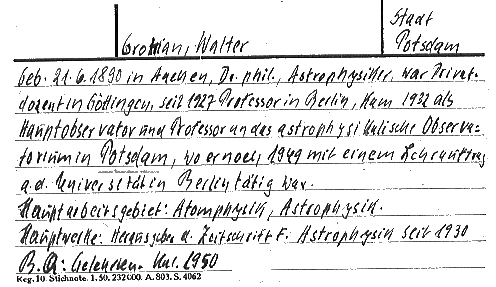 Stadt
Grotrian, Walter Potsdam
Geb. 21.6.1890 in Aachen, Dr. phil., Astrophysiker, war Privat-
dozent in Göttingen, seit 1927 Professor in Berlin, kam 1932 als
Hauptobservator und Professor an das astrophysikalische Observa-
torium in Potsdam, wo er noch 1949 mit einem Lehrauftrag
a.d. Universität in Berlin tätig war.
Hauptarbeitsgebiet: Atomphysik, Astrophysik.
Hauptwerke: Herausgeber d. Zeitschrift f. Astrophysik seit 1930
B.Q: Gelehrten. Kal. 1950
Reg. 10. Stichnote. 1. 50. 232000. A. 803. S. 4062